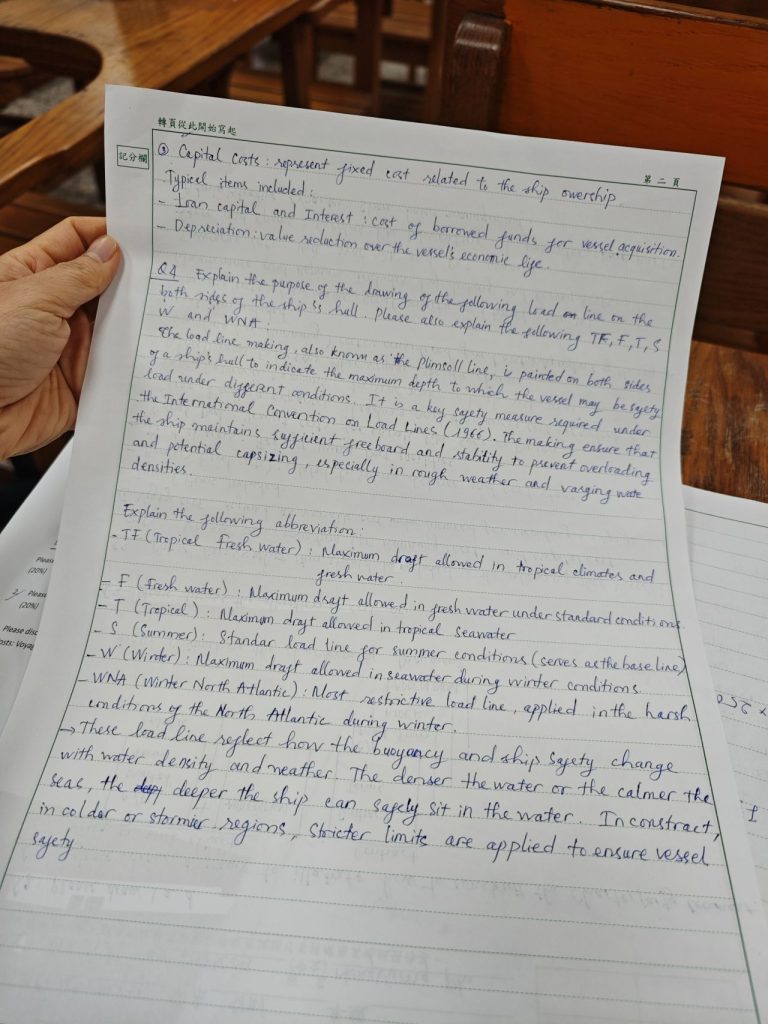 轉頁從此開始寫起
記分欄
第二頁
③ Capital Costs : represent fixed cost related to the ship owership.
Typical items included :
- Loan capital and Interest : cost of borrowed funds for vessel acquisition.
- Depreciation : value reduction over the vessel's economic life.
Q4 Explain the purpose of the drawing of the following load on line on the
both sides of the ship's hull. Please also explain the following TF, F, T, S
W and WNA.
The load line making, also known as the Plimsoll line, is painted on both sides
of a ship's hull to indicate the maximum depth to which the vessel may be safety
load under different conditions. It is a key safety measure required under
the International Convention on Load Lines (1966). The making ensure that
the ship maintains sufficient freeboard and stability to prevent overloading
and potential capsizing, especially in rough weather and varging wate
densities.
Explain the following abbreviation :
- TF (Tropical Fresh water) : Maximum draft allowed in tropical climates and
fresh water.
- F (Fresh water) : Maximum draft allowed in fresh water under standard conditions
- T (Tropical) : Maximum draft allowed in tropical seawater
- S (Summer) : Standar load line for summer conditions (serves as the base line)
- W (Winter) : Maximum draft allowed in seawater during winter conditions.
- WNA (Winter North Atlantic) : Most restrictive load line, applied in the harsh
conditions of the North Atlantic during winter.
→ These load line reflect how the buoyancy and ship safety change
with water density and weather. The denser the water or the calmer the
seas, the deeper the ship can safely sit in the water. In constract,
in colder or stormier regions, stricter limits are applied to ensure vessel
safety
Pleas
(20%)
2/ Pleas
(20%)
Please disc
osts: Voya